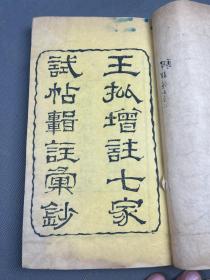 王批增註七家
試帖輯註彙鈔